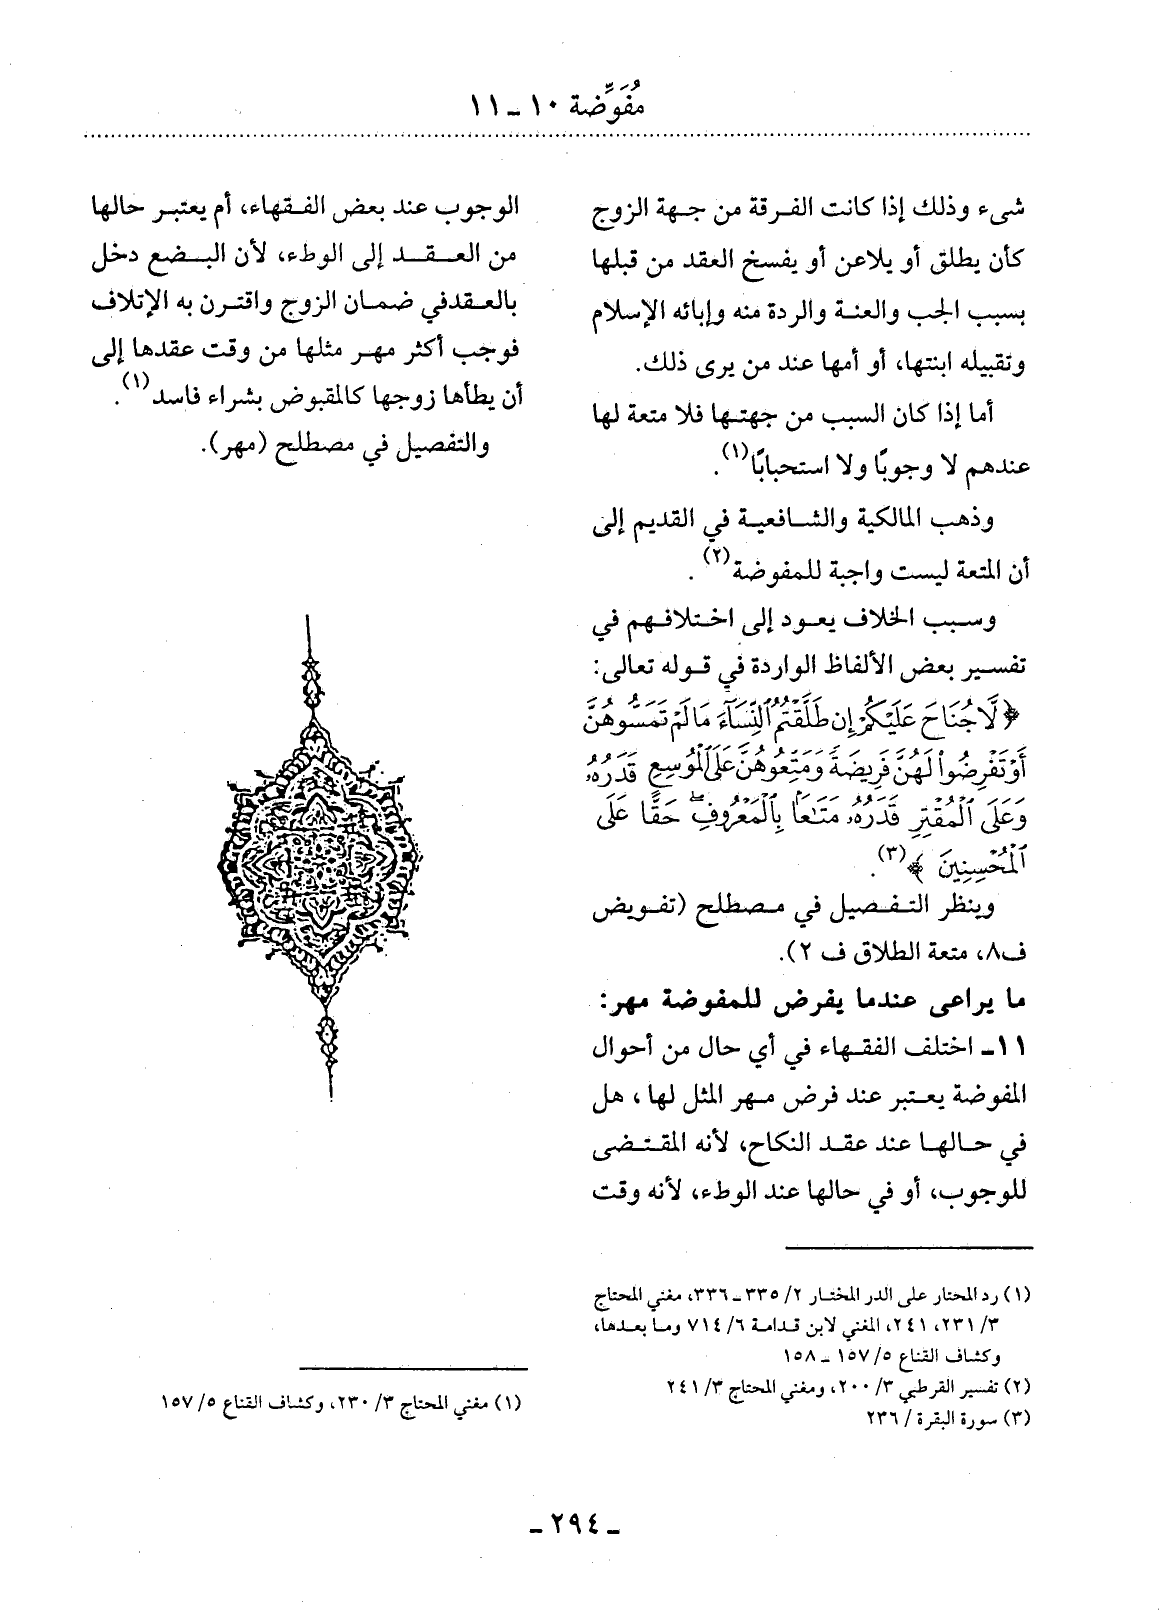 مُفَوِّضة ١٠ ـ ١١
شىء وذلك إذا كانت الفرقة من جهة الزوج
كأن يطلق أو يلاعن أو يفسخ العقد من قبلها
بسبب الجب والعنة والردة منه وإبائه الإسلام
وتقبيله ابنتها، أو أمها عند من يرى ذلك.
أما إذا كان السبب من جهتها فلا متعة لها
عندهم لا وجوبًا ولا استحبابًا(١).
وذهب المالكية والشافعية في القديم إلى
أن المتعة ليست واجبة للمفوضة(٢).
وسبب الخلاف يعود إلى اختلافهم في
تفسير بعض الألفاظ الواردة في قوله تعالى:
﴿ لَّا جُنَاحَ عَلَيْكُمْ إِن طَلَّقْتُمُ ٱلنِّسَآءَ مَا لَمْ تَمَسُّوهُنَّ
أَوْ تَفْرِضُوا۟ لَهُنَّ فَرِيضَةً وَمَتِّعُوهُنَّ عَلَى ٱلْمُوسِعِ قَدَرُهُۥ
وَعَلَى ٱلْمُقْتِرِ قَدَرُهُۥ مَتَـٰعًۢا بِٱلْمَعْرُوفِ ۖ حَقًّا عَلَى
ٱلْمُحْسِنِينَ ﴾(٣).
وينظر التفصيل في مصطلح (تفويض
ف٨، متعة الطلاق ف ٢).
ما يراعى عندما يفرض للمفوضة مهر:
١١ـ اختلف الفقهاء في أي حال من أحوال
المفوضة يعتبر عند فرض مهر المثل لها، هل
في حالها عند عقد النكاح، لأنه المقتضى
للوجوب، أو في حالها عند الوطء، لأنه وقت
(١) رد المحتار على الدر المختار ٢/ ٣٣٥ ـ ٣٣٦، مغني المحتاج
٣/ ٢٣١، ٢٤١، المغني لابن قدامة ٦/ ٧١٤ وما بعدها،
وكشاف القناع ٥/ ١٥٧ ـ ١٥٨
(٢) تفسير القرطبي ٣/ ٢٠٠، ومغني المحتاج ٣/ ٢٤١
(٣) سورة البقرة / ٢٣٦
الوجوب عند بعض الفقهاء، أم يعتبر حالها
من العقد إلى الوطء، لأن البضع دخل
بالعقدفي ضمان الزوج واقترن به الإتلاف
فوجب أكثر مهر مثلها من وقت عقدها إلى
أن يطأها زوجها كالمقبوض بشراء فاسد(١).
والتفصيل في مصطلح (مهر).
(١) مغني المحتاج ٣/ ٢٣٠، وكشاف القناع ٥/ ١٥٧
ـ ٢٩٤ ـ